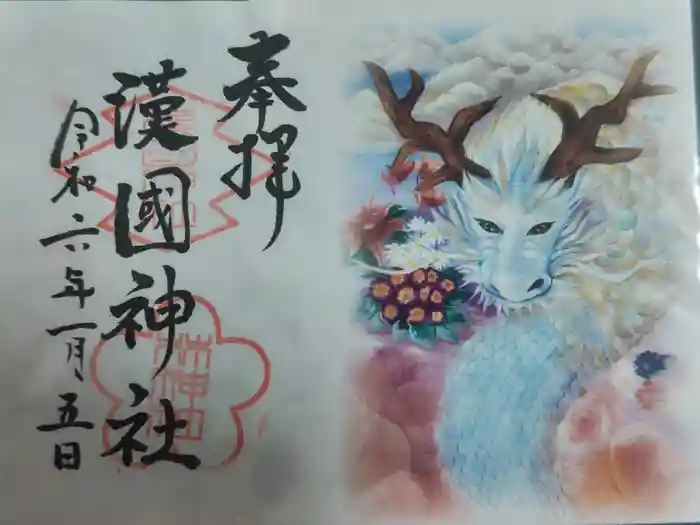 奉拝
漢國神社
令和六年一月五日
林神社